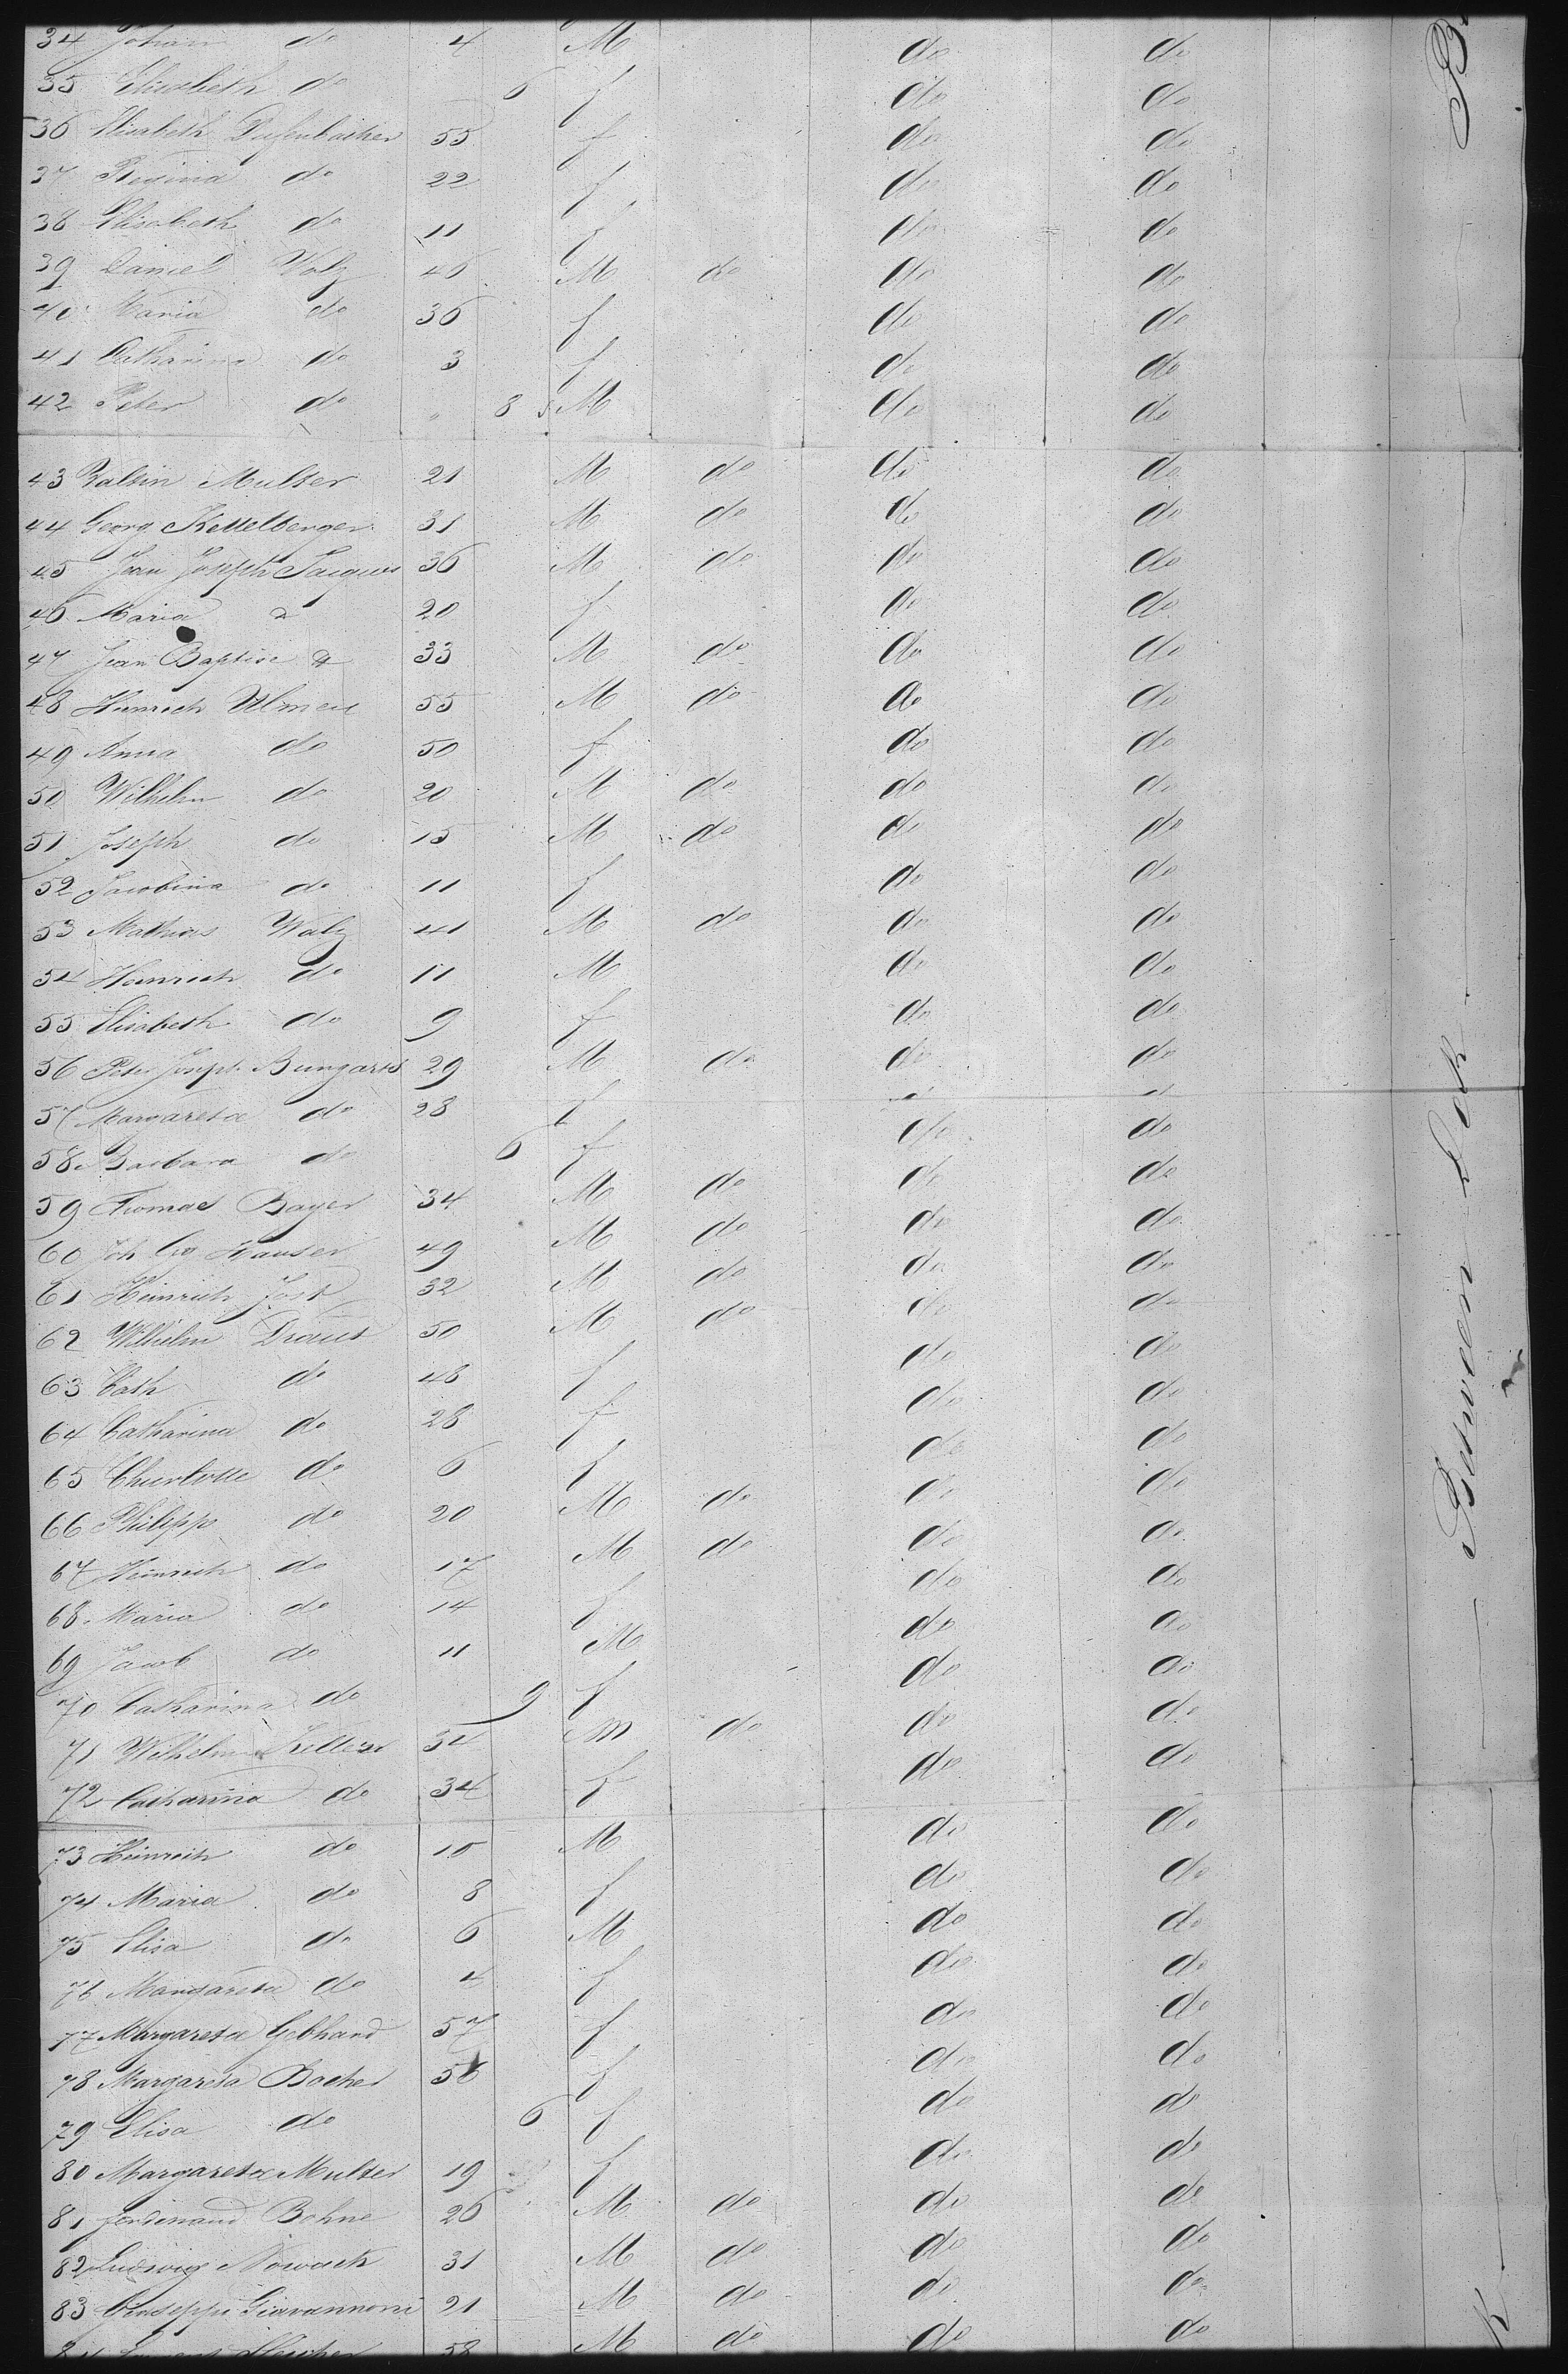 34 Johan do 4 M do do
35 Elisabeth do 6 f do do
36 Elisabeth Diefenbacher 55 f do do
37 Regina do 22 f do do
38 Elisabeth do 11 f do do
39 Daniel Volz 46 M do do do
40 Maria do 36 f do do
41 Catharina do 3 f do do
42 Peter do " 8 M do do
43 Baltin Multer 21 M do do do
44 Georg Kettelberger 31 M do do do
45 Jean Joseph Jacques 36 M do do do
46 Maria do 20 f do do
47 Jean Baptise do 33 M do do do
48 Heinrich Ulmen 55 M do do do
49 Anna do 50 f do do
50 Wilhelm do 20 M do do do
51 Joseph do 15 M do do do
52 Jacobina do 11 f do do
53 Mathias Walz 41 M do do do
54 Heinrich do 11 M do do
55 Elisabeth do 9 f do do
56 Peter Joseph Bungarts 29 M do do do
57 Margareta do 28 f
58 Barbara do 6 f do do
59 Tromas Bayer 34 M do do do
60 Joh Gg Hauser 49 M do do do
61 Heinrich Jost 32 M do do do
62 Wilhelm Draut 50 M do do do
63 Cath do 48 f do do
64 Catharina do 28 f do do
65 Charlotte do 6 f do do
66 Philipp do 20 M do do do
67 Heinrich do 17 M do do do
68 Maria do 14 f do do
69 Jacob do 11 M do do
70 Catharina do 9 f do do
71 Wilhelm Keller 34 M do do do
72 Catharina do 34 f do do
73 Heinrich do 10 M do do
74 Maria do 8 f do do
75 Elisa do 6 M do do
76 Margareta do 4 f do do
77 Margareta Gebhard 57 f do do
78 Margareta Bacher 56 f do do
79 Elisa do 6 f do do
80 Margareta Multer 19 f do do
81 Ferdinand Bohne 26 M do do do
82 Ludwig Nowack 31 M do do do
83 Giuseppi Giavannoni 21 M do do do
84 58 M do do do
Between Deck